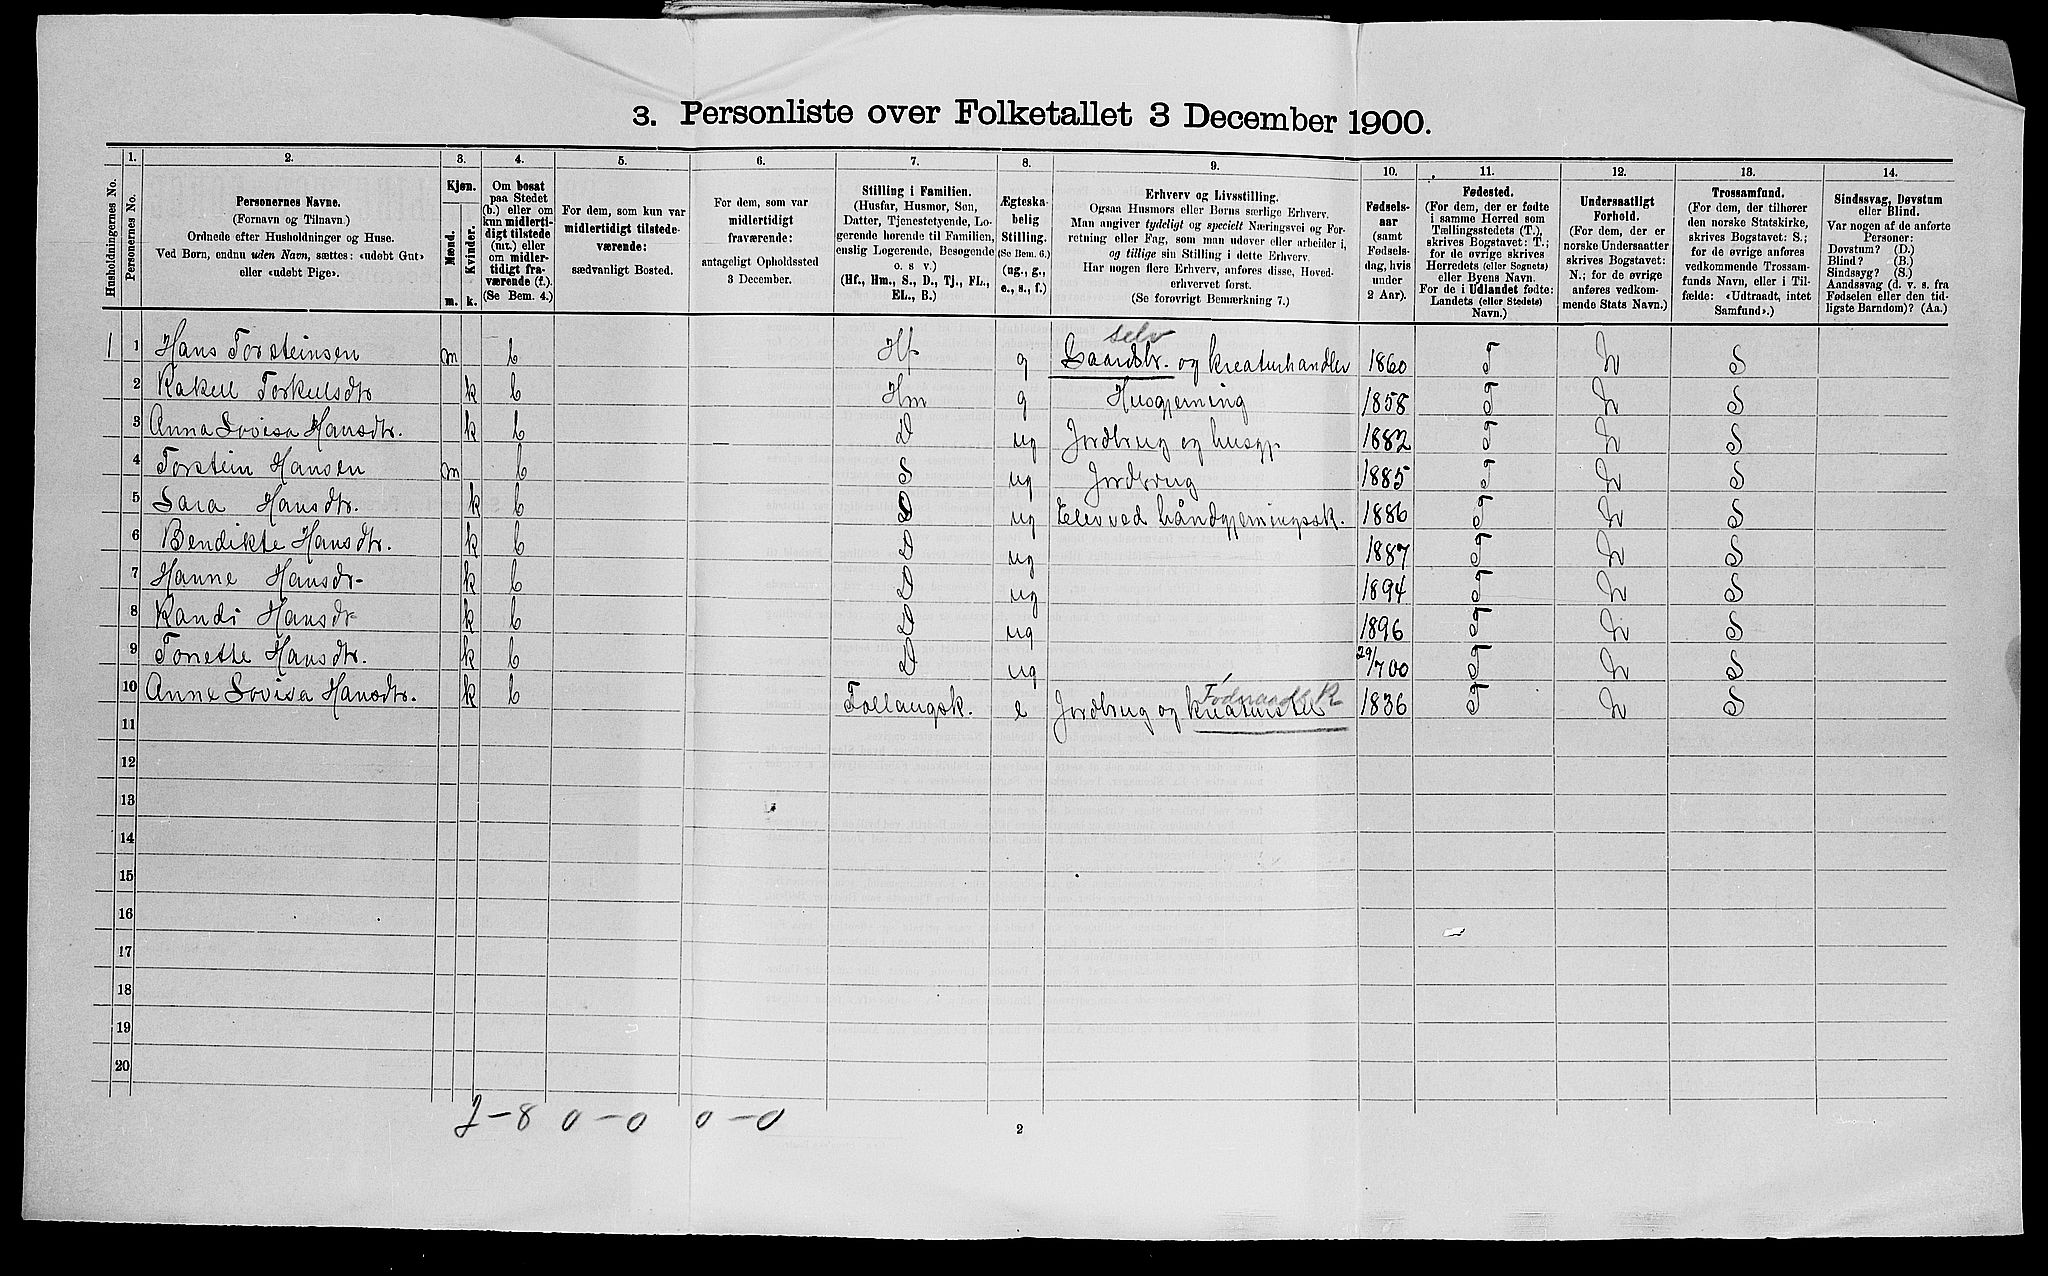 3. Personliste over Folketallet 3 December 1900.
1. 2. 3. 4. 5. 6. 7. 8. 9. 10. 11. 12. 13. 14.
Husholdningernes No.
Personernes No.
Personernes Navne.
(Fornavn og Tilnavn.)
Ordnede efter Husholdninger og Huse.
Ved Børn, endnu uden Navn, sættes: «udøbt Gut»
eller «udøbt Pige».
Kjøn.
Mænd.
Kvinder.
m. k.
Om bosat
paa Stedet
(b.) eller om
kun midlerti-
digt tilstede
(mt.) eller
om midler-
tidigt fra-
værende (f.).
(Se Bem. 4.)
For dem, som kun var
midlertidigt tilstede-
værende:
sædvanligt Bosted.
For dem, som var
midlertidigt
fraværende:
antageligt Opholdssted
3 December.
Stilling i Familien.
(Husfar, Husmor, Søn,
Datter, Tjenestetyende, Lo-
gerende hørende til Familien,
enslig Logerende, Besøgende
o. s v.)
(Hf., Hm., S., D., Tj., FL.,
EL., B.)
Ægteska-
belig
Stilling.
(Se Bem. 6.)
(ug., g.,
e., s., f.)
Erhverv og Livsstilling.
Ogsaa Husmors eller Børns særlige Erhverv.
Man angiver tydeligt og specielt Næringsvei og For-
retning eller Fag, som man udøver eller arbeider i,
og tillige sin Stilling i dette Erhverv.
Har nogen flere Erhverv, anføres disse, Hoved-
erhvervet først.
(Se forøvrigt Bemærkning 7.)
Fødsels-
aar
(samt
Fødsels-
dag, hvis
under
2 Aar).
Fødested.
(For dem, der er fødte
i samme Herred som
Tællingsstedets (T.),
skrives Bogstavet: T.;
for de øvrige skrives
Herredets (eller Sognets)
eller Byens Navn.
For de i Udlandet fødte:
Landets (eller Stedets)
Navn.)
Undersaatligt
Forhold.
(For dem, der er
norske Undersaatter
skrives Bogstavet:
N.; for de øvrige
anføres vedkom-
mende Stats Navn.)
Trossamfund.
(For dem, der tilhører
den norske Statskirke,
skrives Bogstavet: S.;
for de øvrige anføres
vedkommende Trossam-
funds Navn, eller i Til-
fælde: «Udtraadt, intet
Samfund».)
Sindssvag, Døvstum
eller Blind.
Var nogen af de anførte
Personer:
Døvstum? (D.)
Blind? (B.)
Sindssyg? (S.)
Aandssvag (d. v. s. fra
Fødselen eller den tid-
ligste Barndom)? (Aa.)
selv
1 1 Hans Torsteinsen m b Hf g Gaardbr. og kreaturhandler 1860 T N S
2 Rakell Torkelsdtr k b Hm g Husgjerning 1858 T N S
3 Anna Lovisa Hansdtr. k b D ug Jordbrug og husgj. 1882 T N S
4 Torstein Hansen m b S ug Jordbrug 1885 T N S
5 Sara Hansdtr. k b D ug Elev ved håndgjerningssk. 1886 T N S
6 Bendikte Hansdtr. k b D ug 1887 T N S
7 Hanne Hansdr- k b D ug 1894 T N S
8 Randi Hansdr- k b D ug 1896 T N S
9 Tonette Hansdtr. k b D ug 29/7 00 T N S
10 Anne Lovisa Hansdtr. k b Follaugsk. e Jordbrug og kreaturstel 1836 T N S
11
12
13
14
15
16
17
18
19
20
2-8 0-0 0-0
2